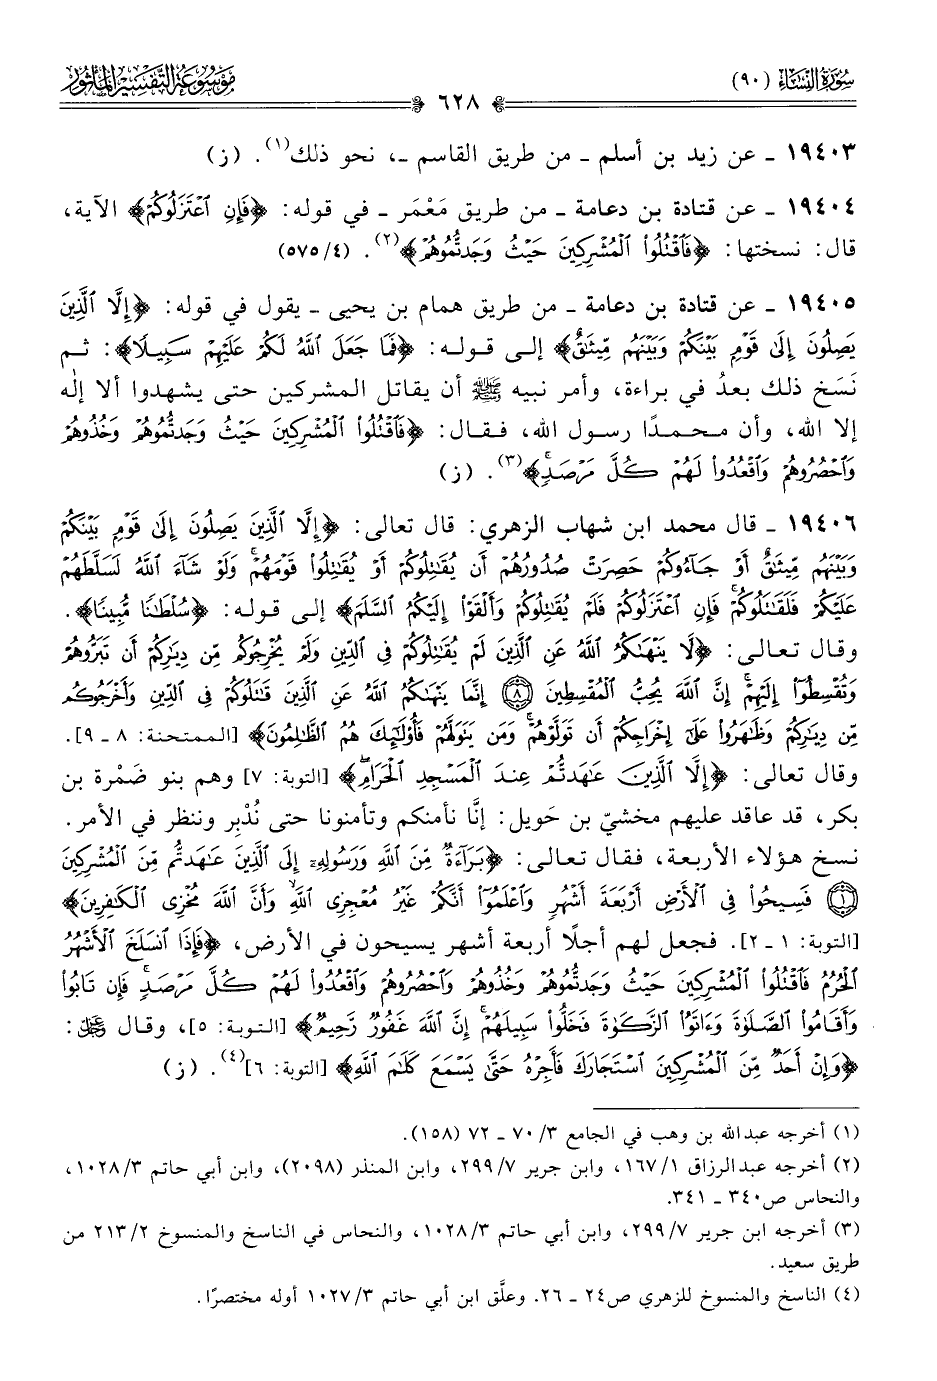 سورة النساء (٩٠)
٦٢٨
موسوعة التفسير المأثور
١٩٤٠٣ ـ عن زيد بن أسلم ـ من طريق القاسم ـ، نحو ذلك(١). (ز)
١٩٤٠٤ ـ عن قتادة بن دعامة ـ من طريق مَعْمَر ـ في قوله: ﴿فَإِنِ ٱعْتَزَلُوكُمْ﴾ الآية،
قال: نسختها: ﴿فَٱقْتُلُوا۟ ٱلْمُشْرِكِينَ حَيْثُ وَجَدتُّمُوهُمْ﴾(٢). (٤/ ٥٧٥)
١٩٤٠٥ ـ عن قتادة بن دعامة ـ من طريق همام بن يحيى ـ يقول في قوله: ﴿إِلَّا ٱلَّذِينَ
يَصِلُونَ إِلَىٰ قَوْمٍۭ بَيْنَكُمْ وَبَيْنَهُم مِّيثَٰقٌ﴾ إلى قوله: ﴿فَمَا جَعَلَ ٱللَّهُ لَكُمْ عَلَيْهِمْ سَبِيلًا﴾: ثم
نَسَخ ذلك بعدُ في براءة، وأمر نبيه ﷺ أن يقاتل المشركين حتى يشهدوا ألا إلٰه
إلا الله، وأن محمدًا رسول الله، فقال: ﴿فَٱقْتُلُوا۟ ٱلْمُشْرِكِينَ حَيْثُ وَجَدتُّمُوهُمْ وَخُذُوهُمْ
وَٱحْصُرُوهُمْ وَٱقْعُدُوا۟ لَهُمْ كُلَّ مَرْصَدٍۚ﴾(٣). (ز)
١٩٤٠٦ ـ قال محمد ابن شهاب الزهري: قال تعالى: ﴿إِلَّا ٱلَّذِينَ يَصِلُونَ إِلَىٰ قَوْمٍۭ بَيْنَكُمْ
وَبَيْنَهُم مِّيثَٰقٌ أَوْ جَآءُوكُمْ حَصِرَتْ صُدُورُهُمْ أَن يُقَٰتِلُوكُمْ أَوْ يُقَٰتِلُوا۟ قَوْمَهُمْۚ وَلَوْ شَآءَ ٱللَّهُ لَسَلَّطَهُمْ
عَلَيْكُمْ فَلَقَٰتَلُوكُمْۚ فَإِنِ ٱعْتَزَلُوكُمْ فَلَمْ يُقَٰتِلُوكُمْ وَأَلْقَوْا۟ إِلَيْكُمُ ٱلسَّلَمَ﴾ إلى قوله: ﴿سُلْطَٰنًا مُّبِينًا﴾.
وقال تعالى: ﴿لَّا يَنْهَىٰكُمُ ٱللَّهُ عَنِ ٱلَّذِينَ لَمْ يُقَٰتِلُوكُمْ فِى ٱلدِّينِ وَلَمْ يُخْرِجُوكُم مِّن دِيَٰرِكُمْ أَن تَبَرُّوهُمْ
وَتُقْسِطُوٓا۟ إِلَيْهِمْۚ إِنَّ ٱللَّهَ يُحِبُّ ٱلْمُقْسِطِينَ ٨ إِنَّمَا يَنْهَىٰكُمُ ٱللَّهُ عَنِ ٱلَّذِينَ قَٰتَلُوكُمْ فِى ٱلدِّينِ وَأَخْرَجُوكُم
مِّن دِيَٰرِكُمْ وَظَٰهَرُوا۟ عَلَىٰٓ إِخْرَاجِكُمْ أَن تَوَلَّوْهُمْۚ وَمَن يَتَوَلَّهُمْ فَأُو۟لَٰٓئِكَ هُمُ ٱلظَّٰلِمُونَ﴾ [الممتحنة: ٨ ـ ٩].
وقال تعالى: ﴿إِلَّا ٱلَّذِينَ عَٰهَدتُّمْ عِندَ ٱلْمَسْجِدِ ٱلْحَرَامِۖ﴾ [التوبة: ٧] وهم بنو ضَمْرة بن
بكر، قد عاقد عليهم مخشيّ بن حَويل: إنَّا نأمنكم وتأمنونا حتى نُدْبِر وننظر في الأمر.
نسخ هؤلاء الأربعة، فقال تعالى: ﴿بَرَآءَةٌ مِّنَ ٱللَّهِ وَرَسُولِهِۦٓ إِلَى ٱلَّذِينَ عَٰهَدتُّم مِّنَ ٱلْمُشْرِكِينَ
١ فَسِيحُوا۟ فِى ٱلْأَرْضِ أَرْبَعَةَ أَشْهُرٍ وَٱعْلَمُوٓا۟ أَنَّكُمْ غَيْرُ مُعْجِزِى ٱللَّهِۙ وَأَنَّ ٱللَّهَ مُخْزِى ٱلْكَٰفِرِينَ﴾
[التوبة: ١ ـ ٢]. فجعل لهم أجلًا أربعة أشهر يسيحون في الأرض، ﴿فَإِذَا ٱنسَلَخَ ٱلْأَشْهُرُ
ٱلْحُرُمُ فَٱقْتُلُوا۟ ٱلْمُشْرِكِينَ حَيْثُ وَجَدتُّمُوهُمْ وَخُذُوهُمْ وَٱحْصُرُوهُمْ وَٱقْعُدُوا۟ لَهُمْ كُلَّ مَرْصَدٍۚ فَإِن تَابُوا۟
وَأَقَامُوا۟ ٱلصَّلَوٰةَ وَءَاتَوُا۟ ٱلزَّكَوٰةَ فَخَلُّوا۟ سَبِيلَهُمْۚ إِنَّ ٱللَّهَ غَفُورٌ رَّحِيمٌ﴾ [التوبة: ٥]، وقال ﷻ:
﴿وَإِنْ أَحَدٌ مِّنَ ٱلْمُشْرِكِينَ ٱسْتَجَارَكَ فَأَجِرْهُ حَتَّىٰ يَسْمَعَ كَلَٰمَ ٱللَّهِ﴾ [التوبة: ٦](٤). (ز)
(١) أخرجه عبدالله بن وهب في الجامع ٣/ ٧٠ ـ ٧٢ (١٥٨).
(٢) أخرجه عبدالرزاق ١/ ١٦٧، وابن جرير ٧/ ٢٩٩، وابن المنذر (٢٠٩٨)، وابن أبي حاتم ٣/ ١٠٢٨،
والنحاس ص٣٤٠ ـ ٣٤١.
(٣) أخرجه ابن جرير ٧/ ٢٩٩، وابن أبي حاتم ٣/ ١٠٢٨، والنحاس في الناسخ والمنسوخ ٢/ ٢١٣ من
طريق سعيد.
(٤) الناسخ والمنسوخ للزهري ص٢٤ ـ ٢٦. وعلَّق ابن أبي حاتم ٣/ ١٠٢٧ أوله مختصرًا.